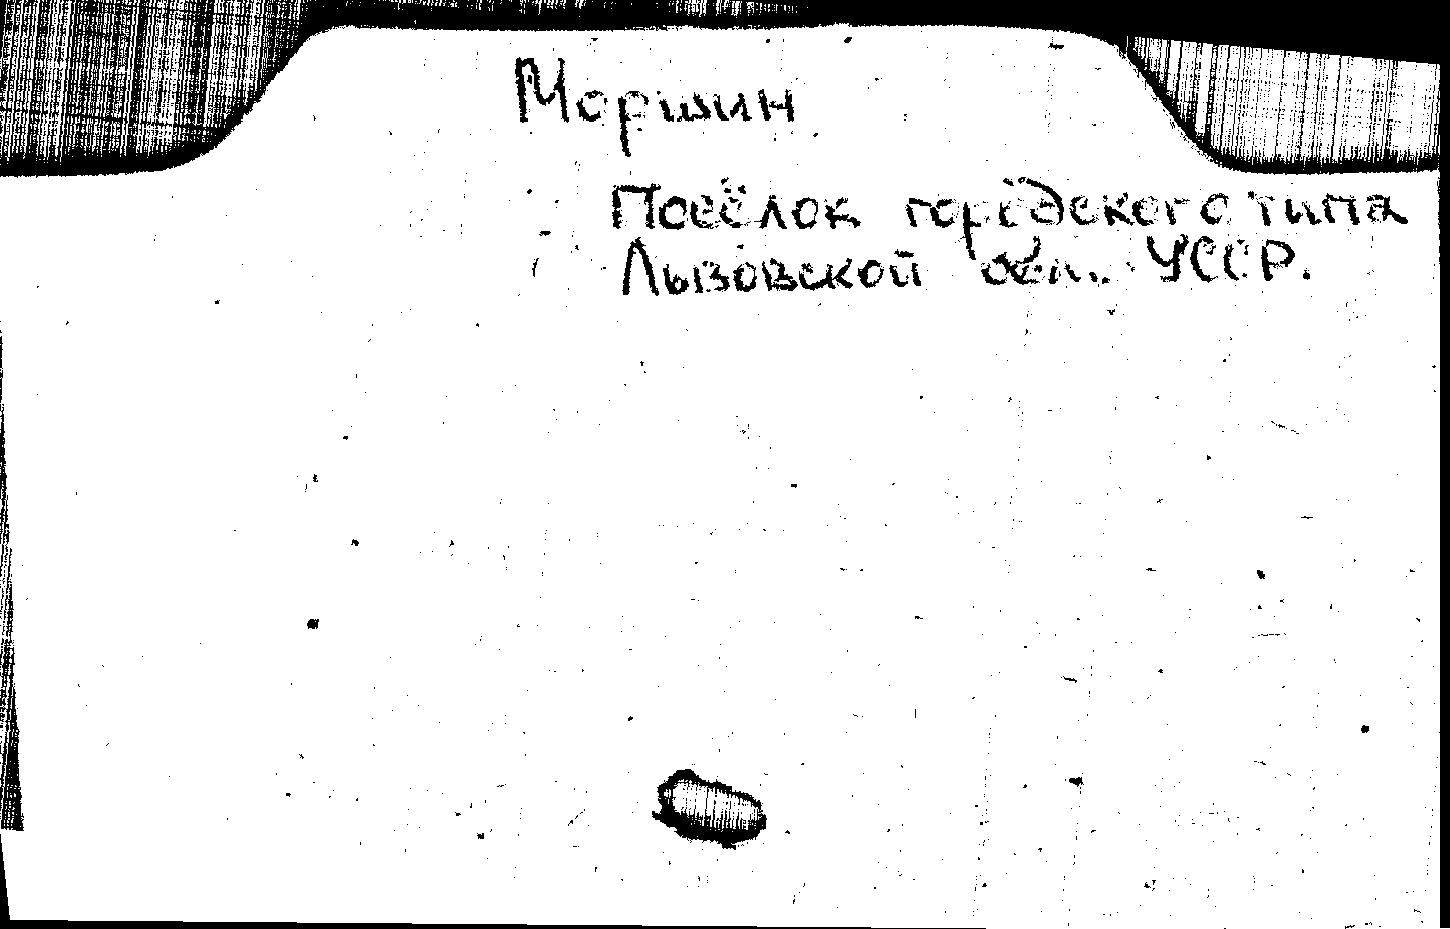 Моршин
Посёлок городского типа
Львовской обл. УССР.